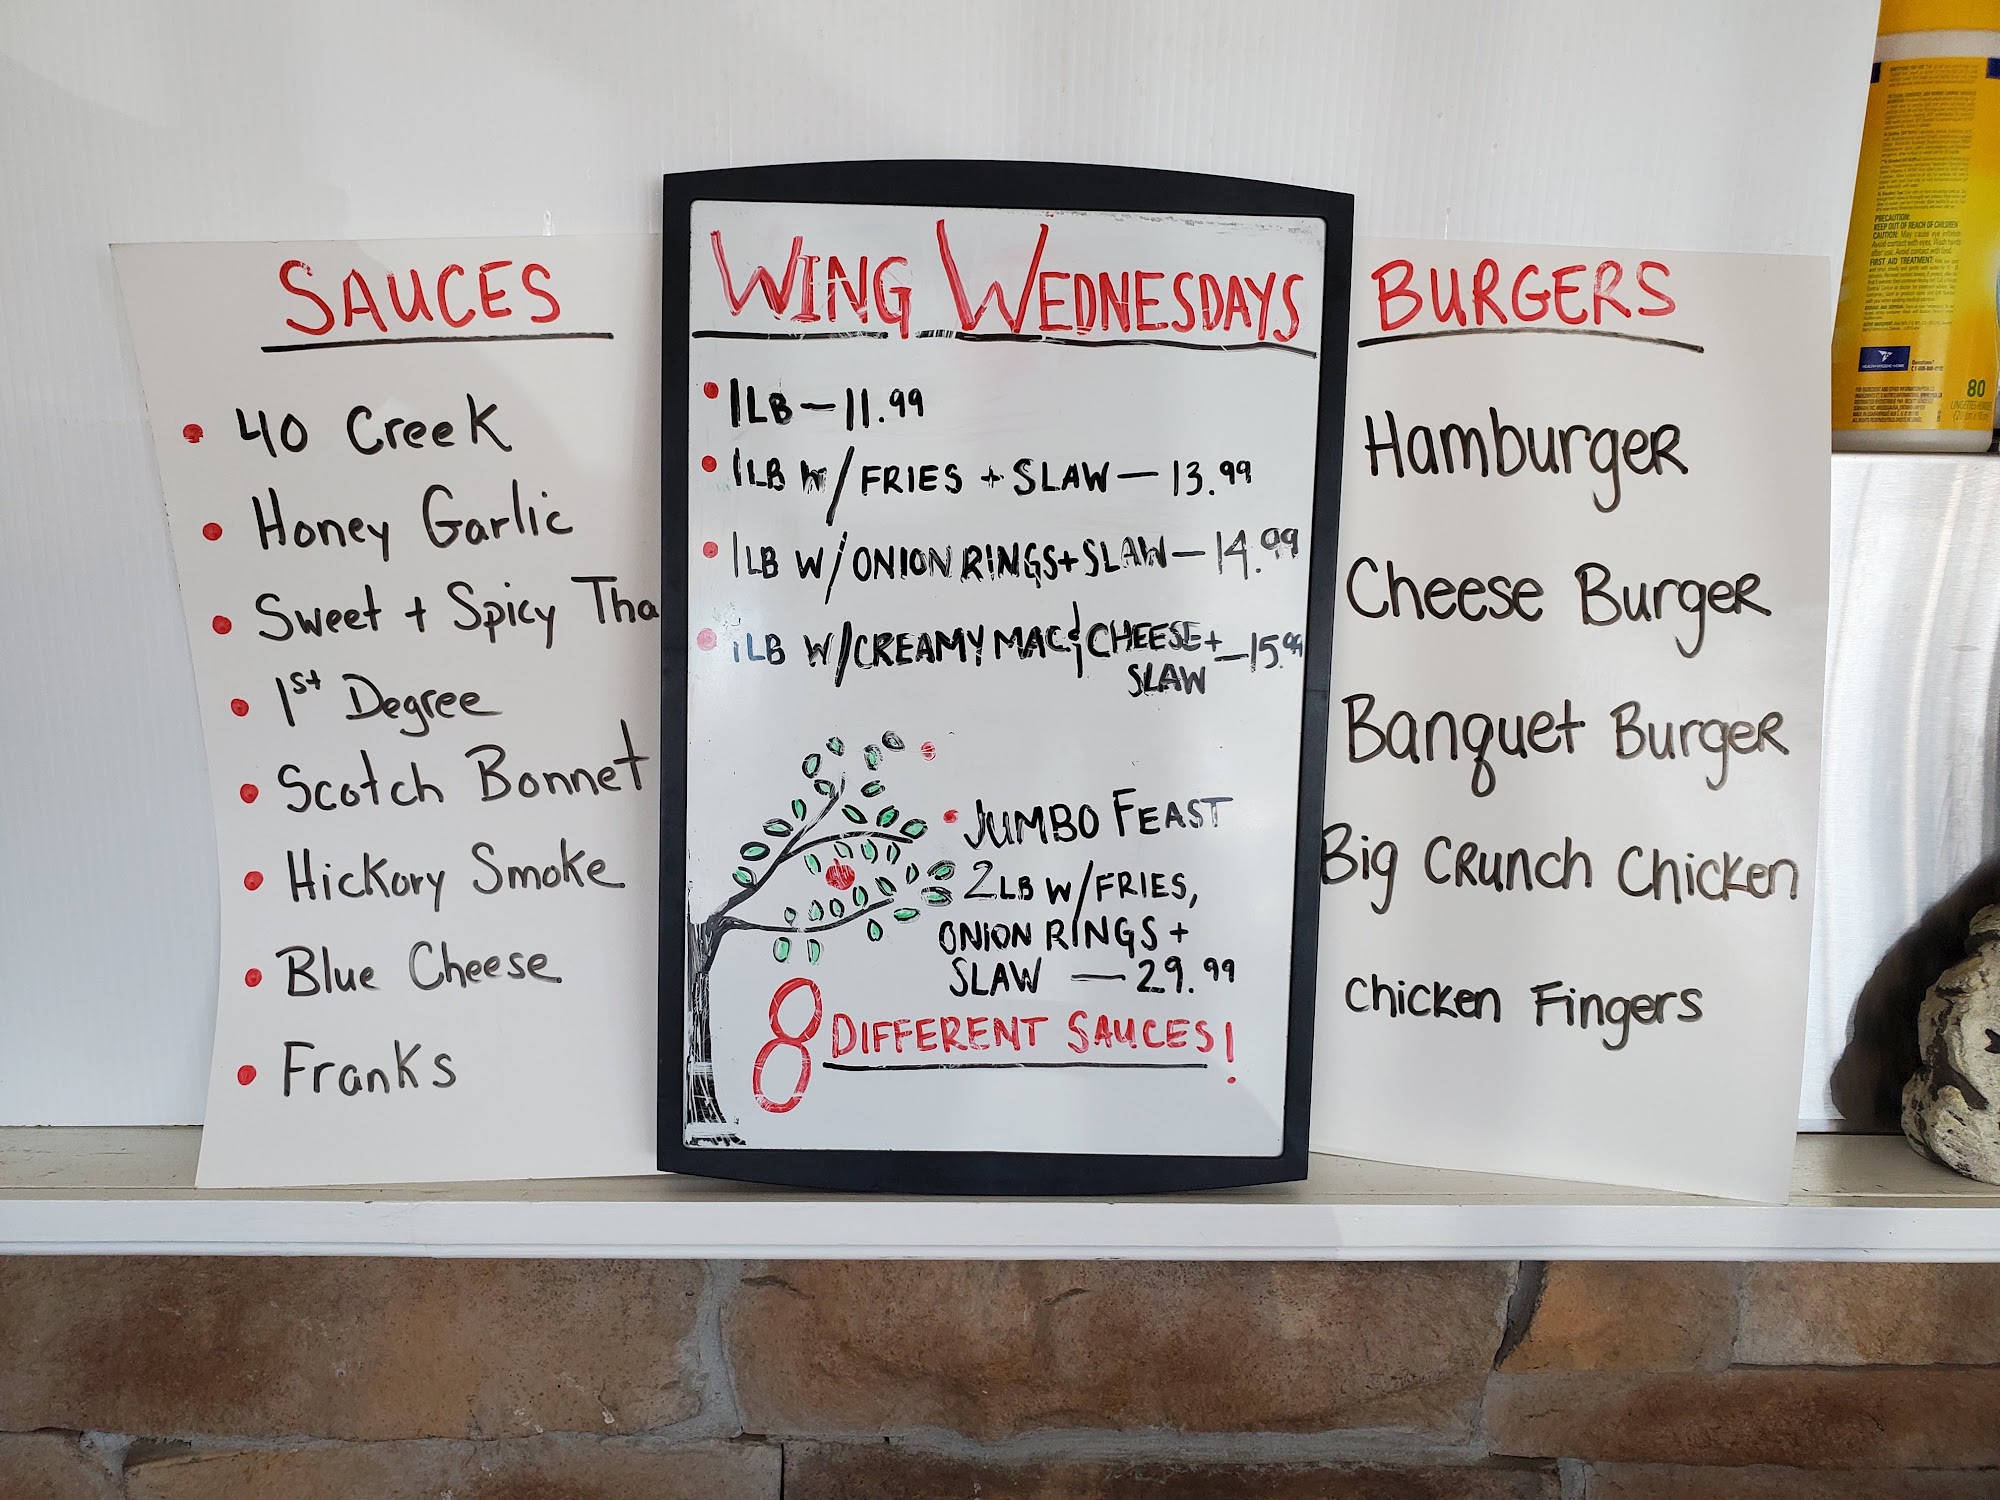 SAUCES
40 Creek
Honey Garlic
Sweet + Spicy Tha
1st Degree
Scotch Bonnet
Hickory Smoke
Blue Cheese
Franks
WING WEDNESDAYS
1LB — 11.99
1LB W/ FRIES + SLAW — 13.99
1LB W/ ONION RINGS + SLAW — 14.99
1LB W/ CREAMY MAC & CHEESE + SLAW — 15.99
JUMBO FEAST
2LB W/ FRIES,
ONION RINGS +
SLAW — 29.99
8 DIFFERENT SAUCES!
BURGERS
Hamburger
Cheese Burger
Banquet Burger
Big Crunch Chicken
Chicken Fingers
PRECAUTION:
KEEP OUT OF REACH OF CHILDREN
FIRST AID TREATMENT:
80